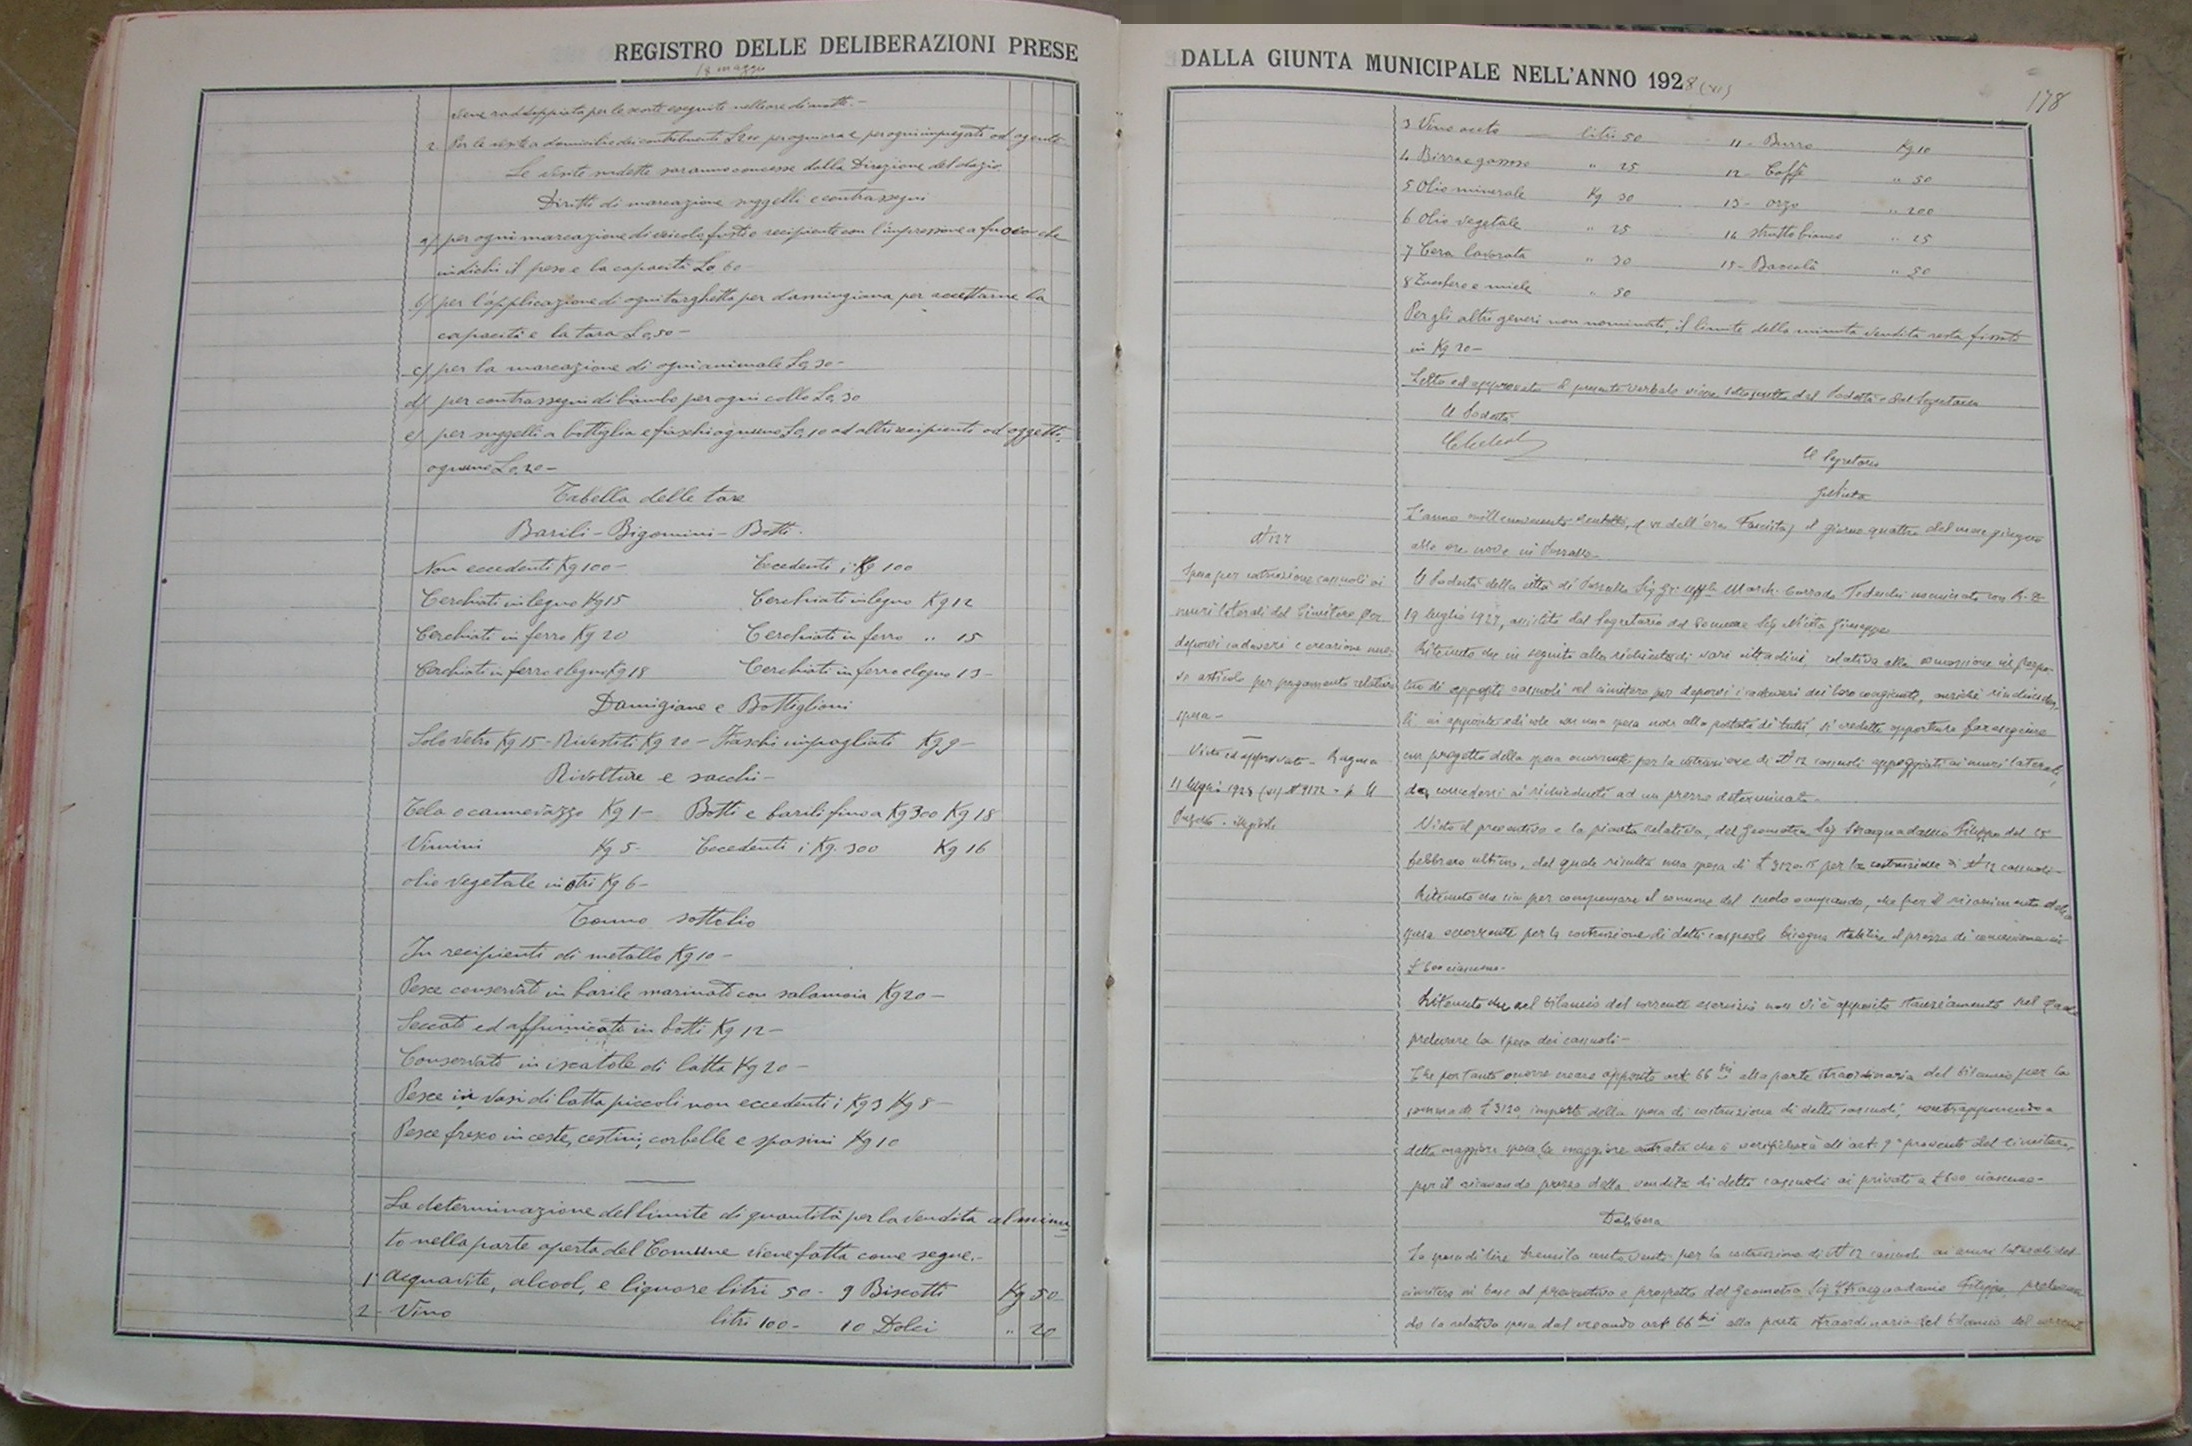 REGISTRO DELLE DELIBERAZIONI PRESE
18 maggio
viene raddoppiata per le scorte eseguite nell'ore di notte. -
2. Per le visite a domicilio dei contribuenti per ogni ora e per ogni impiegato od agente
Le visite sudette saranno concesse dalla Direzione del dazio.
Diritti di marcazione suggelli e contrassegni
a/ per ogni marcazione di veicolo, fusto e recipiente con l'impressione a fuoco che
indichi il peso e la capacità L 0,60
b/ per l'applicazione di ogni targhetta per damigiana per accettarne la
capacità e la tara L 0,50 -
c/ per la marcazione di ogni animale L 0,30 -
d/ per contrassegni di bimbo per ogni collo L 0,30
e/ per suggelli a bottiglia e fiaschi ognuno L 0,10 ad altri recipienti od oggetti,
ognuno L 0,20 -
Tabella delle tare
Barili - Bigonini - Botti.
Non eccedenti Kg 100 - Eccedenti i Kg 100
Cerchiati in legno Kg 15 Cerchiati in legno Kg 12
Cerchiati in ferro Kg 20 Cerchiati in ferro " 15
Cerchiati in ferro e legno Kg 18 Cerchiati in ferro e legno 13 -
Damigiane e Bottiglioni
Solo vetro Kg 15 - Rivestiti Kg 20 - Fiaschi impagliati Kg 9 -
Rivolture e sacchi -
Tela o cannevazzo Kg 1 - Botti e barili fino a Kg 300 Kg 18
Vimini Kg 5 - Eccedenti i Kg. 300 Kg 16
olio vegetale in otri Kg 6 -
Tonno sottolio
In recipienti di metallo Kg 10 -
Pesce conservato in barile marinato con salamoia Kg 20 -
Seccato ed affumicato in botti Kg 12 -
Conservato in iscatole di latta Kg 20 -
Pesce in vasi di latta piccoli non eccedenti i Kg 3 Kg 8 -
Pesce fresco in ceste, cestini, corbelle e spasini Kg 10
La determinazione del limite di quantità per la vendita al minu
to nella parte aperta del Comune viene fatta come segue. -
1 acquavite, alcool, e liquore litri 50 - 9 Biscotti Kg 50
2 - Vino litri 100 - 10 Dolci " 20
DALLA GIUNTA MUNICIPALE NELL'ANNO 1928 (VI)
178
3 Vino aceto litri 50 11 - Burro Kg 10
4 Birra e gassose " 25 12 - Caffè " 50
5 Olio minerale Kg 30 13 - orzo " 200
6 olio vegetale " 25 14 strutto bianco " 25
7 Cera lavorata " 30 15 - Baccalà " 50
8 Zucchero e miele " 50
Per gli altri generi non nominati, il limite della minuta vendita resta fissato
in Kg 20 -
Letto ed approvato il presente verbale viene sottoscritto dal Podestà e dal Segretario
Il Podestà
Il Segretario
GNicita
L'anno millenovecento ventotto, (VI dell'era Fascista) il giorno quattro del mese giugno
alle ore nove in
N 127
Spesa per costruzione casuoli ai
muri laterali del Cimitero per
deporvi cadaveri e creazione nuo-
vo articolo per pagamento relativa
spesa -
Visto ed approvato - Ragusa
11 luglio 1928 (VI) N 9172 - p. Il
Prefetto - illegibile
Il Podestà della città di Sig Gr. Uff.le March. Corrado Tedeschi nominato con R. D.
19 luglio 1927, assistito dal Segretario del Comune Sig Nicita Giuseppe
Ritenuto che in seguito alla richiesta di vari cittadini, relativa alla concessione in perpe-
tuo di appositi casuoli nel cimitero per deporvi i cadaveri dei loro congiunti, anzichè rinchiuder-
li in apposite edicole con una spesa non alla portata di tutti, si credette opportuno far eseguire
un progetto della spesa occorrente per la costruzione di N 12 casuoli appoggiati ai muri laterali,
da concedersi ai richiedenti ad un prezzo determinato -
Visto il preventivo e la pianta relativa, del Geometra Sig Stracquadanio Filippo del 25
febbraio ultimo, dal quale risulta una spesa di £ 3120.15 per la costruzione di N 12 casuoli -
Ritenuto che sia per compensare il comune del suolo occupando, che per il risarcimento della
spesa occorrente per la costruzione di detti casuoli bisogna stabilire il prezzo di concessione in
£ 600 ciascuno -
Ritenuto che nel bilancio del corrente esercizio non vi è apposito stanziamento nel quale
prelevare la spesa dei casuoli -
Che pertanto occorre creare apposito art 66 bis alla parte straordinaria del bilancio per la
somma di £ 3120 importo della spesa di costruzione di detti casuoli, contrapponendo a
detta maggiore spesa la maggiore entrata che si verificherà all'art. 9 proventi del Cimitero,
per il ricavando prezzo della vendita di detti casuoli ai privati a £ 600 ciascuno -
Delibera
La spesa di lire tremila cento venti per la costruzione di N 12 casuoli ai muri laterali del
cimitero in base al preventivo e prospetto del Geometra Sig Stracquadanio Filippo, prelevan-
do la relativa spesa dal creando art 66 bis alla parte straordinaria del bilancio del corrente